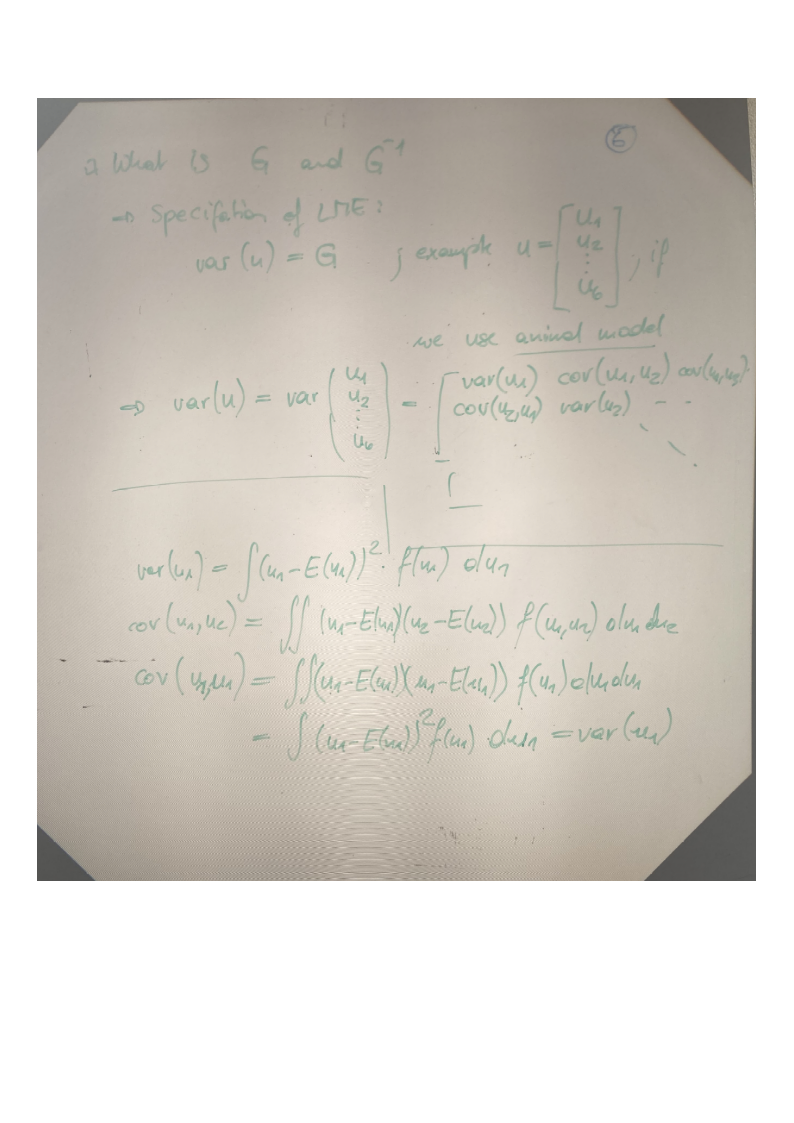 ⑥
What is G and G⁻¹
→ Specifation of LME:
var (u) = G ; example u = [u₁ u₂ ⋮ u₆] , if
we use animal model
⇒ var(u) = var (u₁ u₂ ⋮ u₆) = [var(u₁) cov(u₁,u₂) cov(u₁,u₃)
cov(u₂,u₁) var(u₂) - -
var(u₁) = ∫(u₁-E(u₁))² · f(u₁) du₁
cov(u₁,u₂) = ∬ (u₁-E(u₁))(u₂-E(u₂)) f(u₁,u₂) du₁ du₂
cov(u₁,u₁) = ∬(u₁-E(u₁)(u₁-E(u₁)) f(u₁) du₁du₁
= ∫ (u₁-E(u₁))² f(u₁) · du₁ = var(u₁)